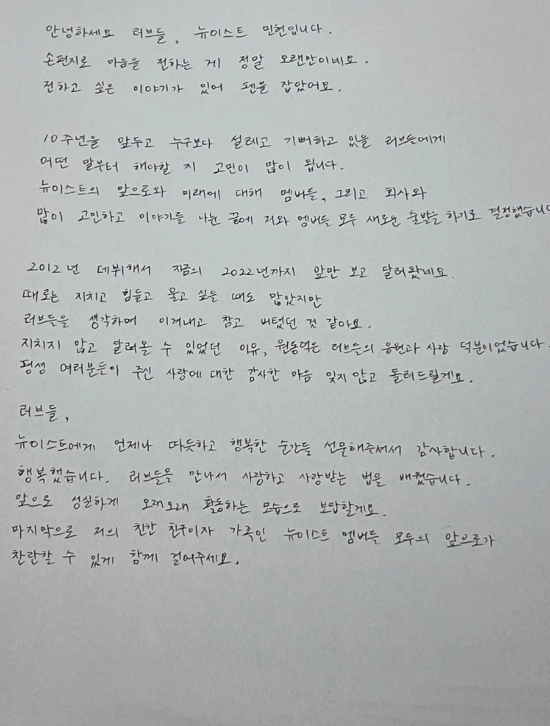 안녕하세요 러브들, 뉴이스트 민현입니다.
손편지로 마음을 전하는 게 정말 오랜만이네요.
전하고 싶은 이야기가 있어 펜을 잡았어요.
10주년을 앞두고 누구보다 설레고 기뻐하고 있을 러브들에게
어떤 말부터 해야할 지 고민이 많이 됩니다.
뉴이스트의 앞으로와 미래에 대해 멤버들, 그리고 회사와
많이 고민하고 이야기를 나눈 끝에 저와 멤버들 모두 새로운 출발을 하기로 결정했습니다
2012년 데뷔해서 지금의 2022년까지 앞만 보고 달려왔네요.
때로는 지치고 힘들고 울고 싶을 때도 많았지만
러브들을 생각하며 이겨내고 참고 버텼던 것 같아요.
지치지 않고 달려올 수 있었던 이유, 원동력은 러브들의 응원과 사랑 덕분이었습니다.
평생 여러분들이 주신 사랑에 대한 감사한 마음 잊지 않고 돌려드릴게요.
러브들,
뉴이스트에게 언제나 따듯하고 행복한 순간들 선물해주셔서 감사합니다.
행복했습니다. 러브들을 만나서 사랑하고 사랑받는 법을 배웠습니다.
앞으로 성실하게 오래오래 활동하는 모습으로 보답할게요.
마지막으로 저의 친한 친구이자 가족인 뉴이스트 멤버들 모두의 앞으로가
찬란할 수 있게 함께 걸어주세요.